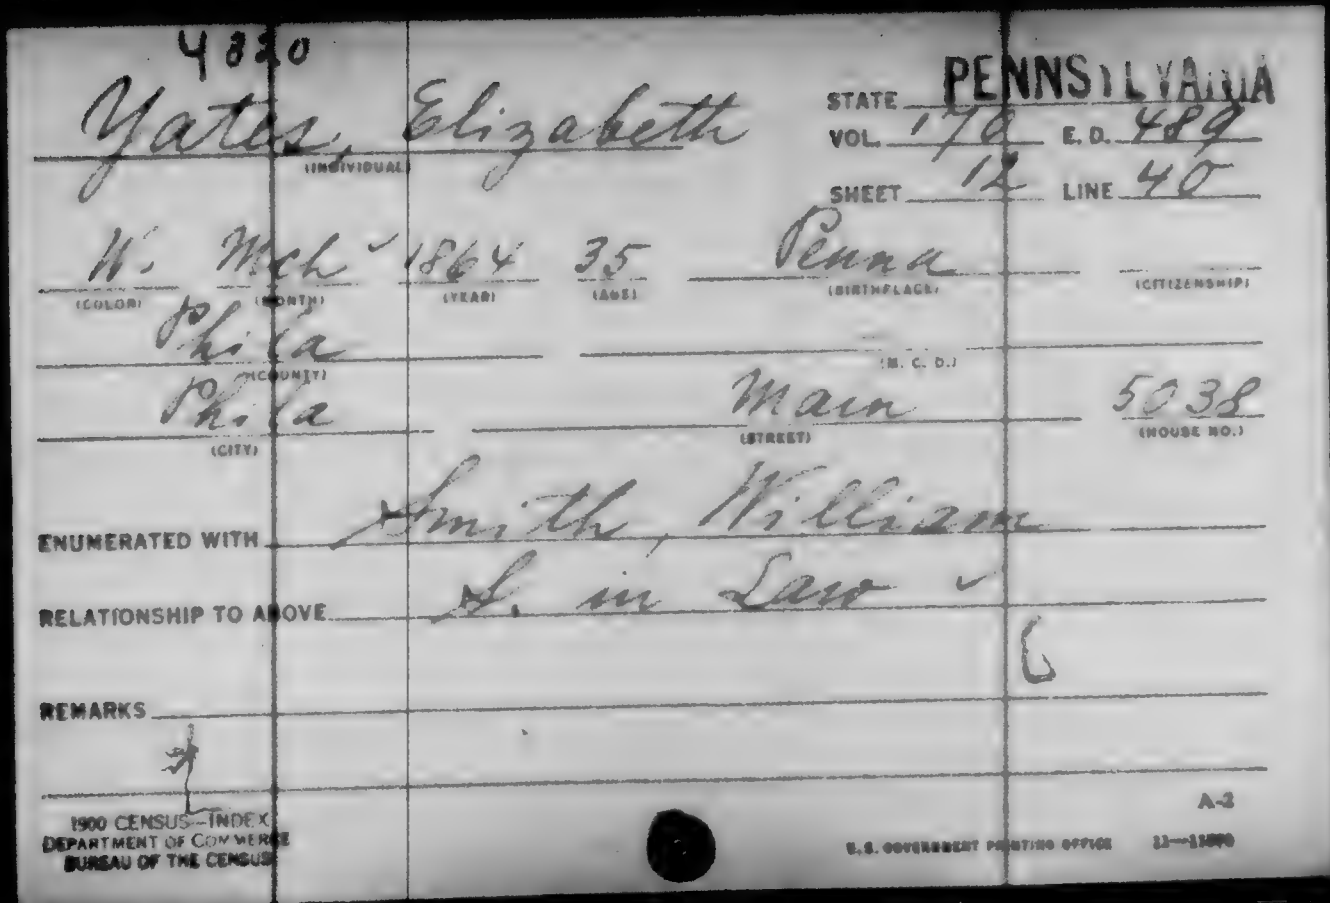 4820
PENNSYLVANIA
STATE
Yates, Elizabeth
(INDIVIDUAL)
VOL. 170 E. D. 489
SHEET 12 LINE 40
W. Mch 1864 35 Penna
(COLOR) (MONTH) (YEAR) (AGE) (BIRTHPLACE) (CITIZENSHIP)
Phila
(COUNTY) (M. C. D.)
Phila Main 5038
(CITY) (STREET) (HOUSE NO.)
ENUMERATED WITH Smith, William
RELATIONSHIP TO ABOVE S. in Law
REMARKS
1900 CENSUS—INDEX
DEPARTMENT OF COMMERCE
BUREAU OF THE CENSUS
A-2
U.S. GOVERNMENT PRINTING OFFICE